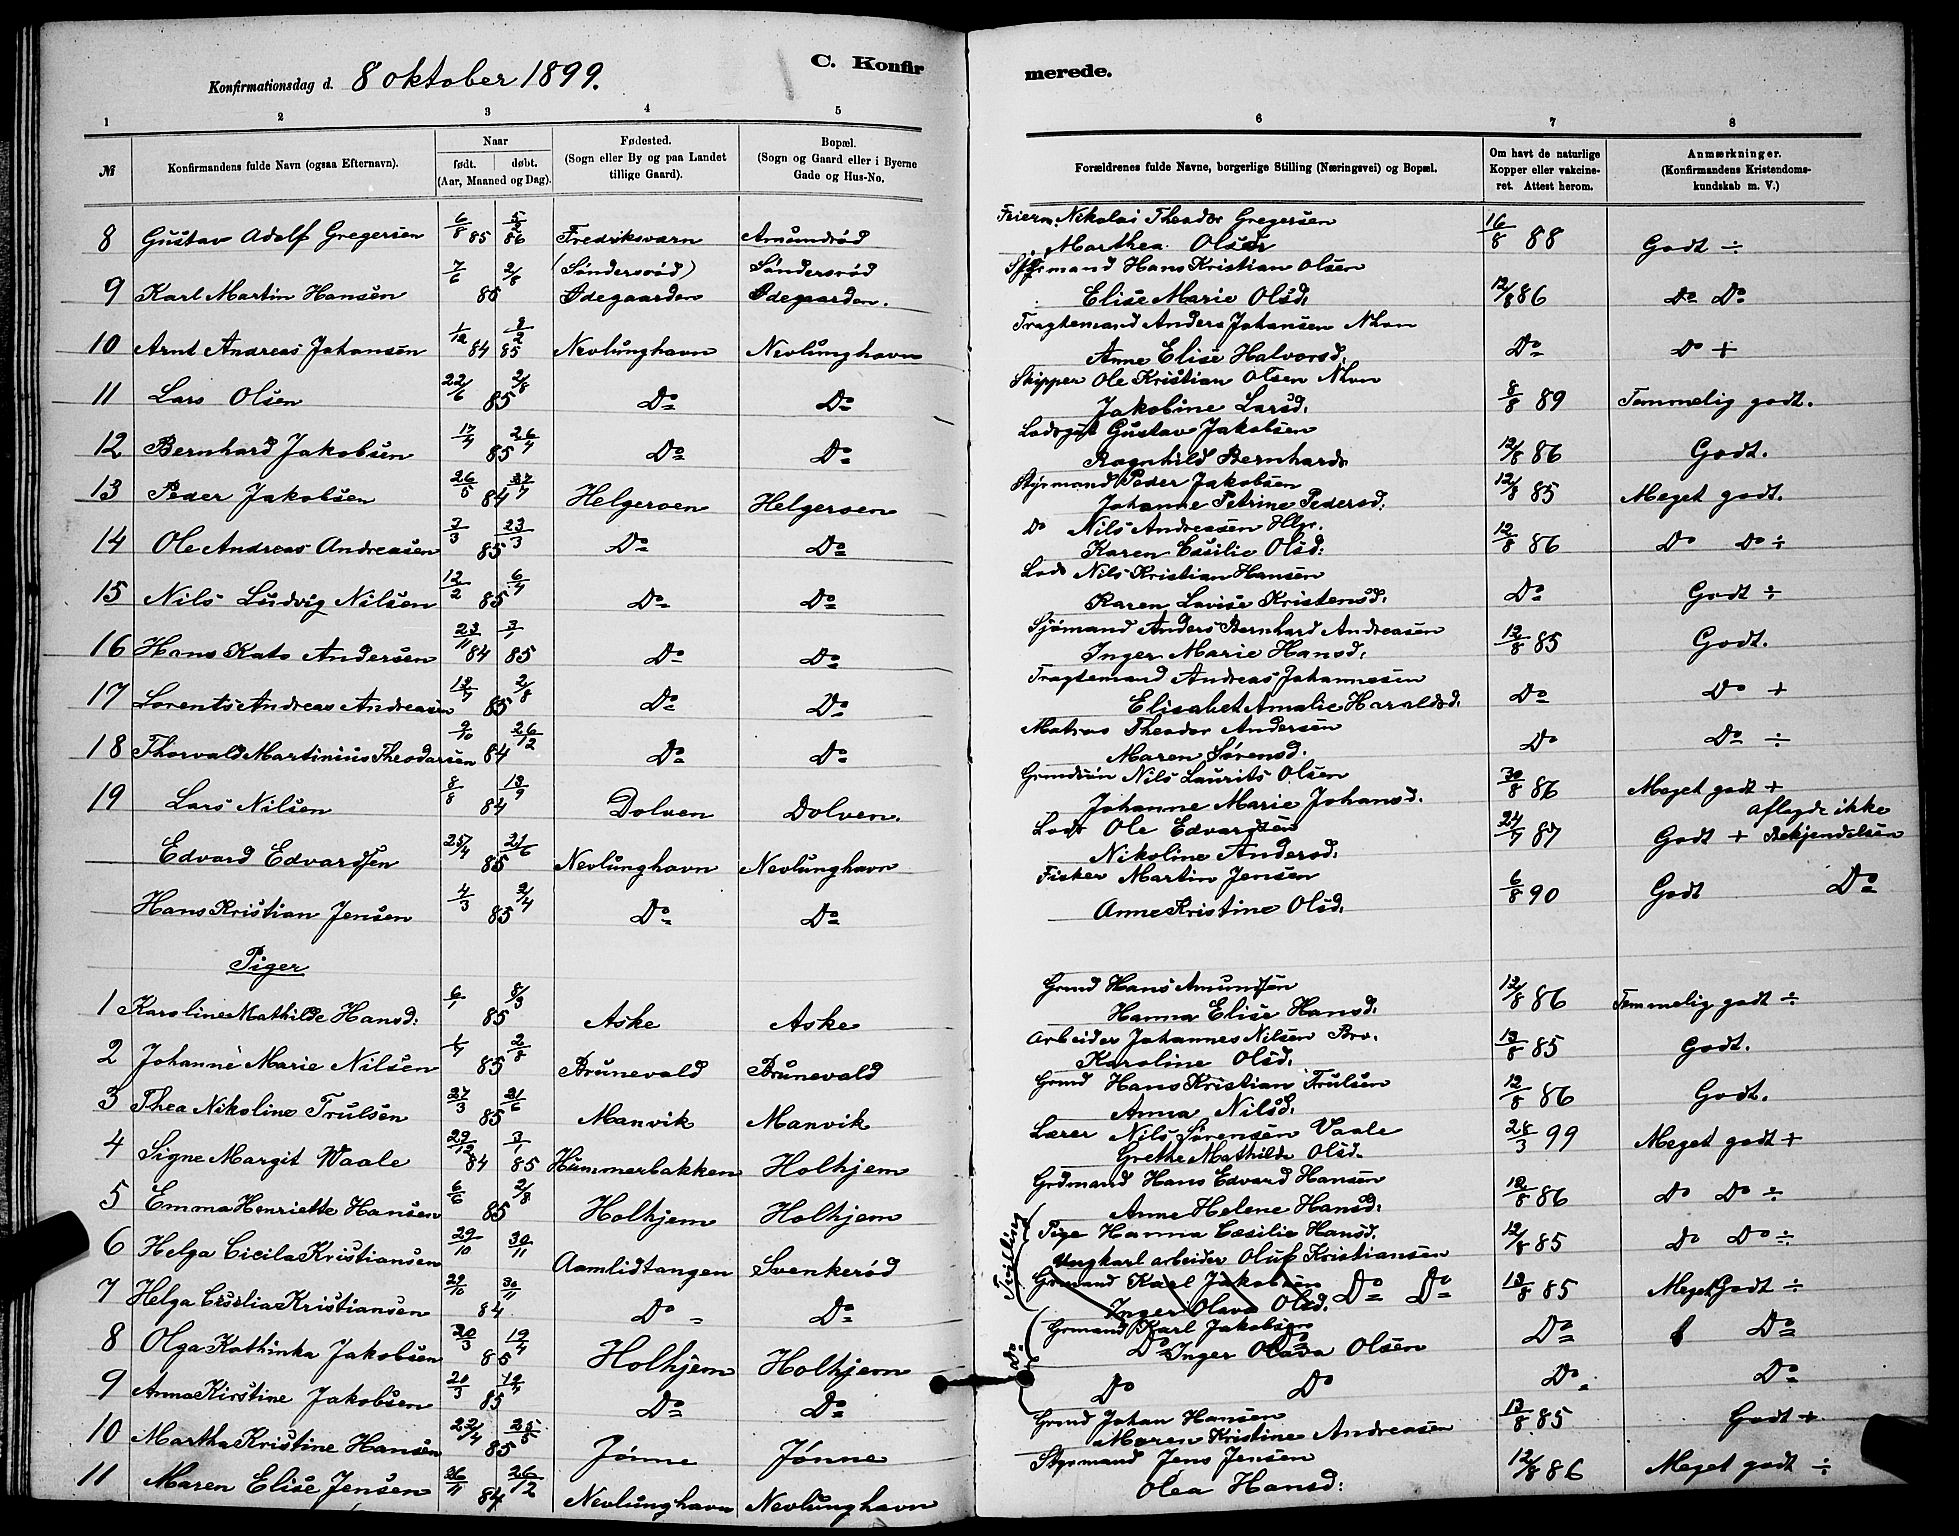 Konfirmationsdag d. 8 oktober 1899.
C. Konfir
merede.
1 2 3 4 5 6 7 8
№ Konfirmandens fulde Navn (ogsaa Efternavn). Naar født. døbt. (Aar, Maaned og Dag). Fødested. (Sogn eller By og paa Landet tillige Gaard). Bopæl. (Sogn og Gaard eller i Byerne Gade og Hus-No. Forældrenes fulde Navne, borgerlige Stilling (Næringsvei) og Bopæl. Om havt de naturlige Kopper eller vakcineret. Attest herom. Anmærkninger. (Konfirmandens Kristendomskundskab m. V.)
8 Gustav Adolf Gregersen 6/8 85 5/2 86 Fredriksværn Amundrød Nikolai Theodor Gregersen 16/8 88 Godt ÷
Marthea Olsdr
9 Karl Martin Hansen 7/6 2/8 85 (Søndersrød) Ødegaarden Søndersrød Ødegaarden. Sjømand Hans Kristian Olsen 12/8 86 Do Do
Elise Marie Olsd.
10 Arnt Andreas Johansen 1/12 84 2/2 85 Nevlunghavn Nevlunghavn Fragtemand Anders Johansen Nhvn Do Do +
Anne Elise Halvorsd.
11 Lars Olsen 22/6 2/8 85 Do Do Skipper Ole Kristian Olsen Nhvn 8/8 89 Temmelig godt.
Jakobine Larsd.
12 Bernhard Jakobsen 17/4 26/4 85 Do Do Lodsgut Gustav Jakobsen 12/8 86 Godt.
Ragnhild Bernhards
13 Peder Jakobsen 26/5 27/7 84 Helgeroen Helgeroen Styrmand Peder Jakobsen 12/8 85 Meget godt.
Johanne Petrine Pedersd.
14 Ole Andreas Andreasen 3/3 23/3 85 Do Do Do Nils Andreasen Hlgr. 12/8 86 Do Do ÷
Karen Cesilie Olsd:
15 Nils Ludvig Nilsen 12/2 6/4 85 Do Do Lods Nils Kristian Hansen Do Godt ÷
Karen Lovise Kristensd.
16 Hans Kato Andersen 23/11 84 3/1 85 Do Do Sjømand Anders Bernhard Andreasen 12/8 85 Godt.
Inger Marie Hansd.
17 Lorents Andreas Andreasen 12/7 2/8 85 Do Do Fragtemand Andreas Johannesen Do Do +
Elisabet Amalie Haraldsd.
18 Thorvald Martinius Theodorsen 9/10 26/12 84 Do Do Matros Theodor Andersen Do Do ÷
Maren Sørensd.
19 Lars Nilsen 8/8 13/9 84 Dolven Dolven. Nils Laurits Olsen 30/8 86 Meget godt +
Johanne Marie Johansd.
Edvard Edvardsen 25/4 21/6 85 Nevlunghavn Nevlunghavn Lods Ole Edvardsen 24/7 87 Godt + aflagde ikke Bekjendelsen
Nikoline Andersd.
Hans Kristian Jensen 4/3 2/4 85 Do Do Fisker Martin Jensen 6/8 90 Godt Do
Anne Kristine Olsd.
Piger
1 Karoline Mathilde Hansd: 6/1 8/3 85 Aske Aske Grmd Hans Amundsen 12/8 86 Temmelig godt ÷
Hanna Elise Hansd.
2 Johanne Marie Nilsen 1/7 2/8 85 Brunevald Brunevald Arbeider Johannes Nilsen Brv. 13/8 85 Godt.
Karoline Olsd.
3 Thea Nikoline Trulsen 27/3 21/6 85 Manvik Manvik Grmd Hans Kristian Trulsen 12/8 86 Godt.
Anna Nilsd.
4 Signe Margit Waale 29/12 84 3/1 85 Hummerbakken Holhjem Lærer Nils Sørensen Vaale 28/3 99 Meget godt +
Grethe Mathilde Olsd.
5 Emma Henriette Hansen 6/6 2/8 85 Holhjem Holhjem Grdmand Hans Edvard Hansen 12/8 86 Do Do ÷
Anne Helene Hansd.
6 Helga Cicila Kristiansen 29/10 30/11 Aamlidtangen Svenkerød Tvilling Pige Hanna Cæsilie Hansd. 12/8 85 Do Do ÷
Ungkarl arbeider Oluf Kristiansen
7 Helga Cesilia Kristiansen 29/10 30/11 84 Do Do Grmand Karl Jakobsen Do Do 13/8 85 Meget Godt ÷
Inger Olava Olsd.
8 Olga Kathinka Jakobsen 20/3 19/4 85 Holhjem Holhjem Do Grmand Karl Jakobsen Do Do
Inger Olava Olsen
9 Anna Kirstine Jakobsen 20/3 19/4 85 Do Do Do Do Do Do
10 Martha Kristine Hansen 22/4 25/5 85 Jønne Jønne Grmd Johan Hansen 13/8 85 Godt +
Maren Kristine Andreasen
11 Maren Elise Jensen 26/11 26/12 84 Nevlunghavn Nevlunghavn Styrmand Jens Jensen 12/8 86 Meget godt ÷
Olea Hansd: